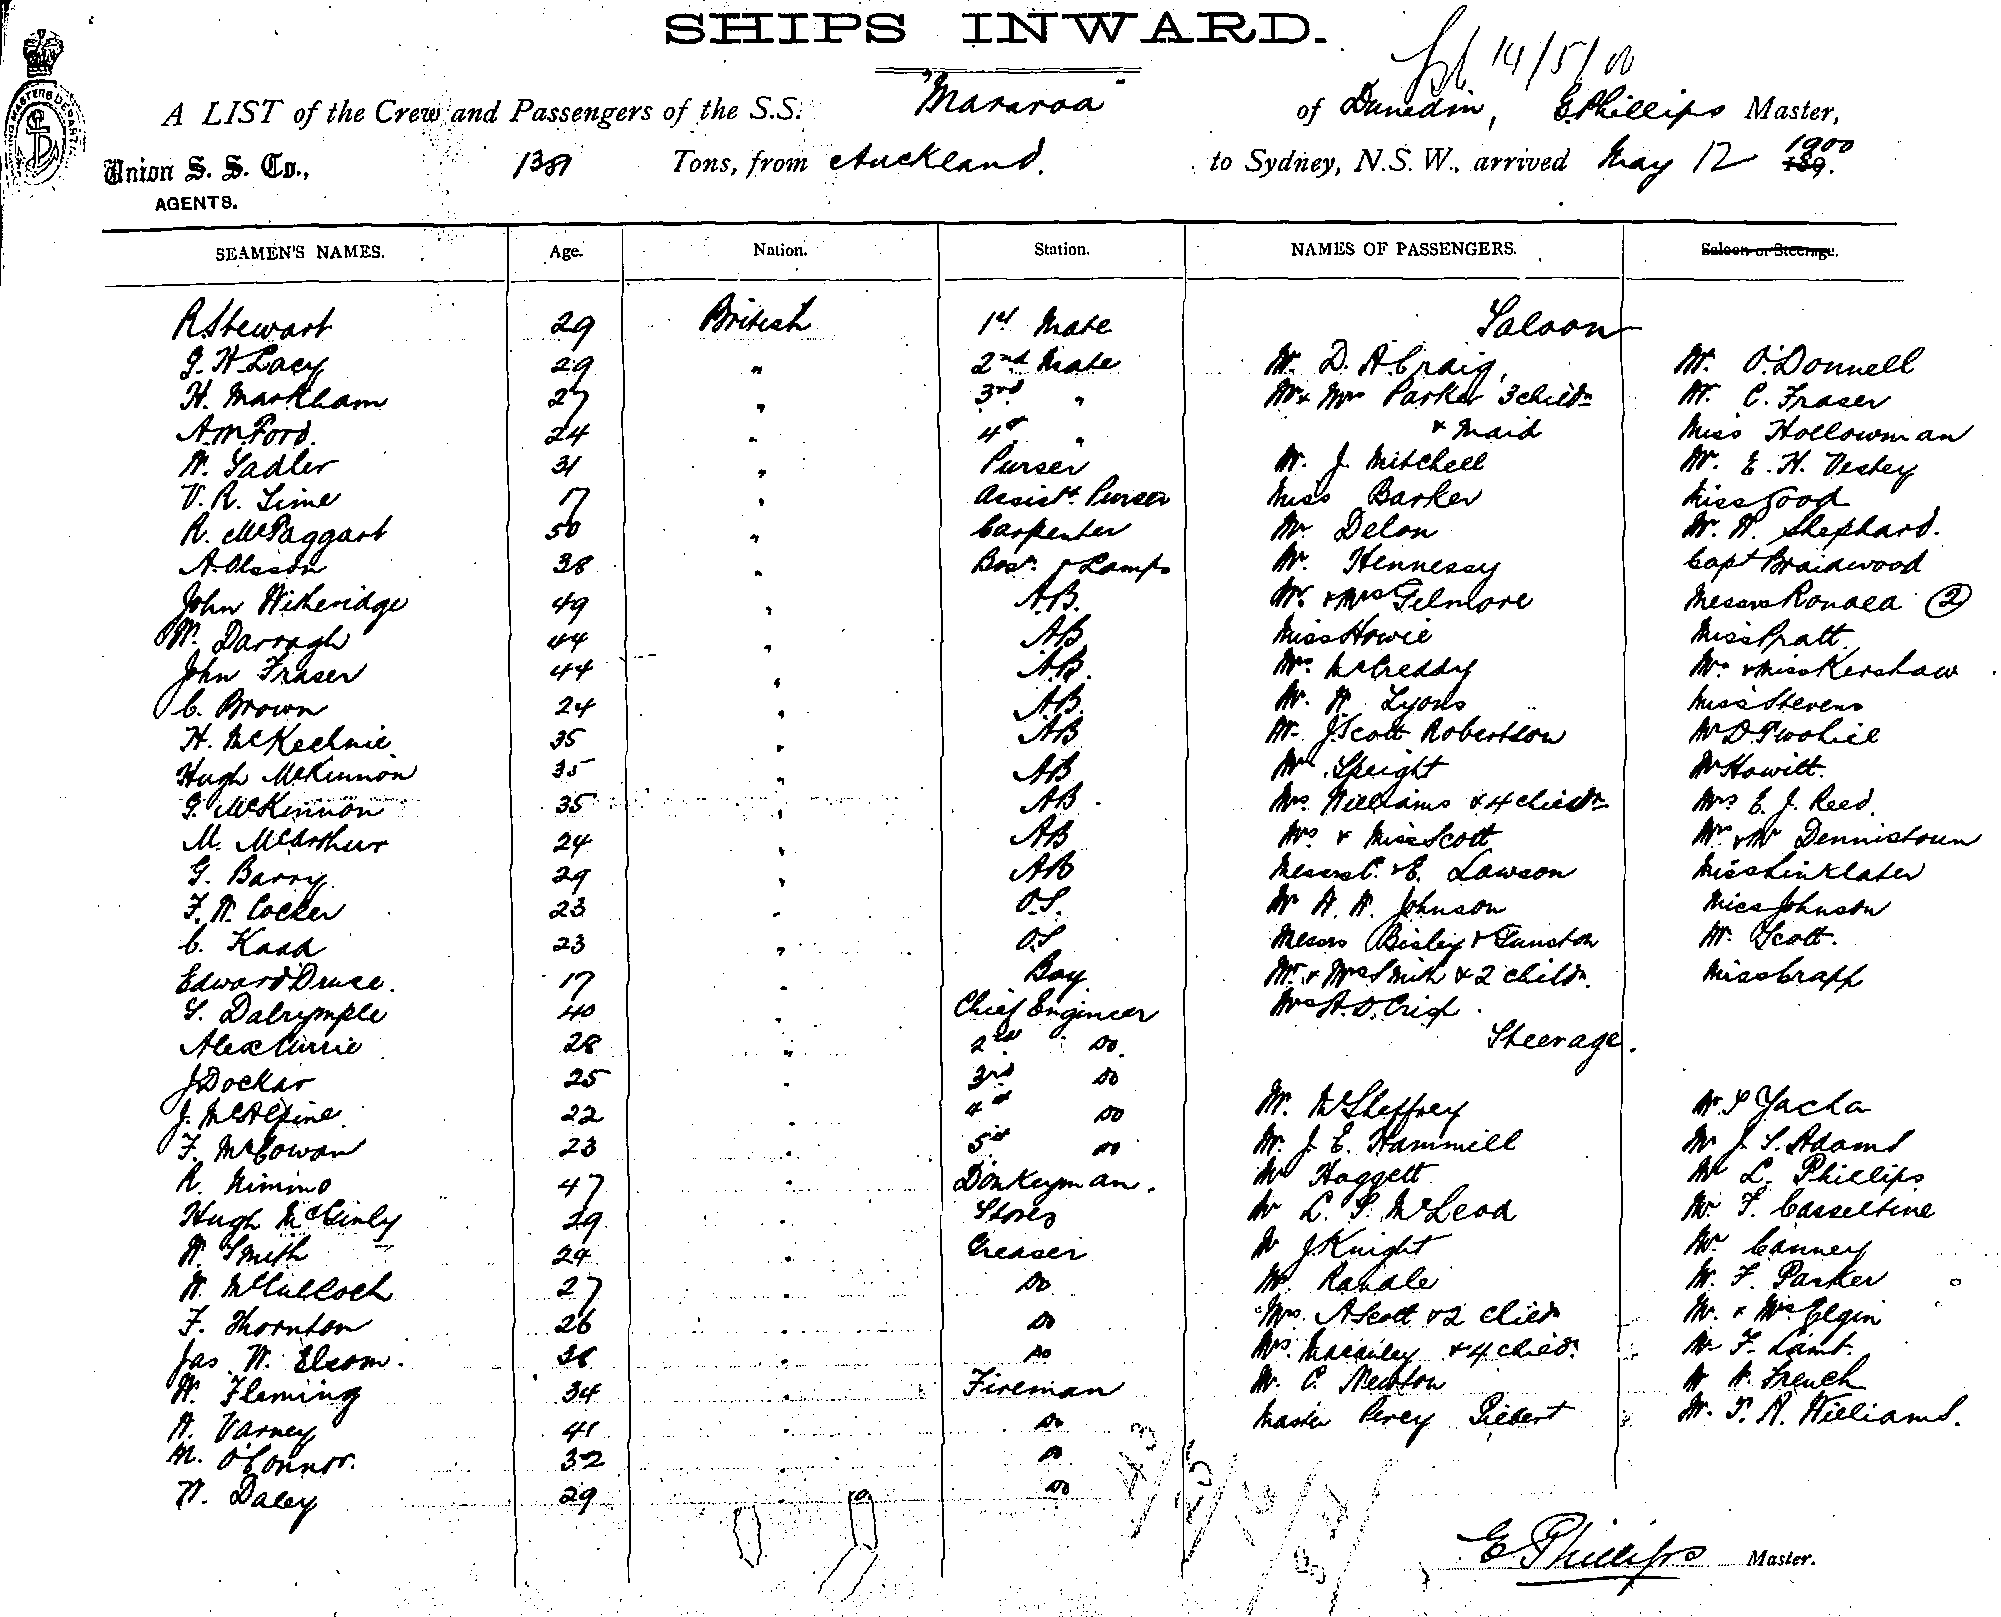 SHIPS INWARD.
14/5/00
A LIST of the Crew and Passengers of the S.S. "Mararoa" of Dunedin, E Phillips Master,
Union S. S. Co., 1381 Tons, from Auckland. to Sydney, N.S.W., arrived May 12 1900 189.
AGENTS.
SEAMEN'S NAMES. Age. Nation. Station. NAMES OF PASSENGERS. Saloon or Steerage.
R Stewart 29 British 1st Mate Saloon
G. H Lacy 29 " 2nd Mate Mr. D. A Craig, Mr. O'Donnell
H. Markham 27 " 3rd " Mr & Mrs Parker 3 childn Mr. C. Fraser
A. M. Ford. 24 " 4th " & Maid Miss Hollowman
W. Sadler 31 " Purser Mr. J. Mitchell Mr. E. H. Vestey
V. R. Lime 17 " Assist. Purser Miss Barker Miss Good
R. McTaggart 50 " Carpenter Mr Delon Mr. W. Shephard.
A. Olsson 38 " Bosn. & Lamps Mr. Hennessy Capt Braidwood
John Witheridge 49 " A.B. Mr. & Mrs Gilmore Messrs Ronaea 2
W. Darragh 44 " AB Miss Howie Miss Pratt.
John Fraser 44 " A.B. Mrs McCreddy Mr. & Miss Kershaw
C. Brown 24 " A.B. Mr. W. Lyons Miss Stevens
H. McKechnie 35 " AB Mr J. Scott Robertson Mr D. Twohill
Hugh McKinnon 35 " AB Mr. Speight Mr Howitt.
G. McKinnon 35 " AB. Mrs. Williams & 4 childn Mrs E. J. Reed.
M. McArthur 24 " AB Mrs & Miss Scott Mr & Mr Dennistoun
G. Barry 29 " AB Messrs C. & E. Lawson Miss Linklater
F. W. Cocker 23 " O.S. Mr W. W. Johnson Miss Johnson
C. Kaad 23 " O.S Messrs Bisley & Gunston Mr. Scott.
Edward Druce. 17 " Boy Mr. & Mrs Smith & 2 childn. Miss Crapp
S. Dalrymple 40 " Chief Engineer Mrs A. D. Crisp.
Alex Currie 28 " 2nd Do. Steerage.
J Dockar 25 " 3rd Do
J. McAlpine 22 " 4th Do Mr. McSheffrey Mr S Yacha
F. McCowan 23 " 5th Do Mr. J. E. Hammill Mr J. S. Adams
R. Nimmo 47 " Donkeyman. Mr Hoggett Mr L. Phillips
Hugh McGinly 29 " Stores Mr L. S. McLeod Mr. F. Casseltine
W. Smith 24 " Greaser Mr J Knight Mr Canney
W. McCulloch 27 " Do Mr. Randle Mr. F. Parker
F. Thornton 26 " Do Mrs. A Scott & 2 childn Mr. & Mrs Elgin
Jas W. Elsom. 38 " Do Mrs. Macauley & 4 childn. Mr F. Lamb.
W. Fleming 34 " Fireman Mr. C. Newton Mr W. French
W. Varney 41 " Do Master Percy Siebert Mr. T. R. Williams.
M. O'Connor. 32 " Do
W. Daley 29 Do
E Phillips Master.